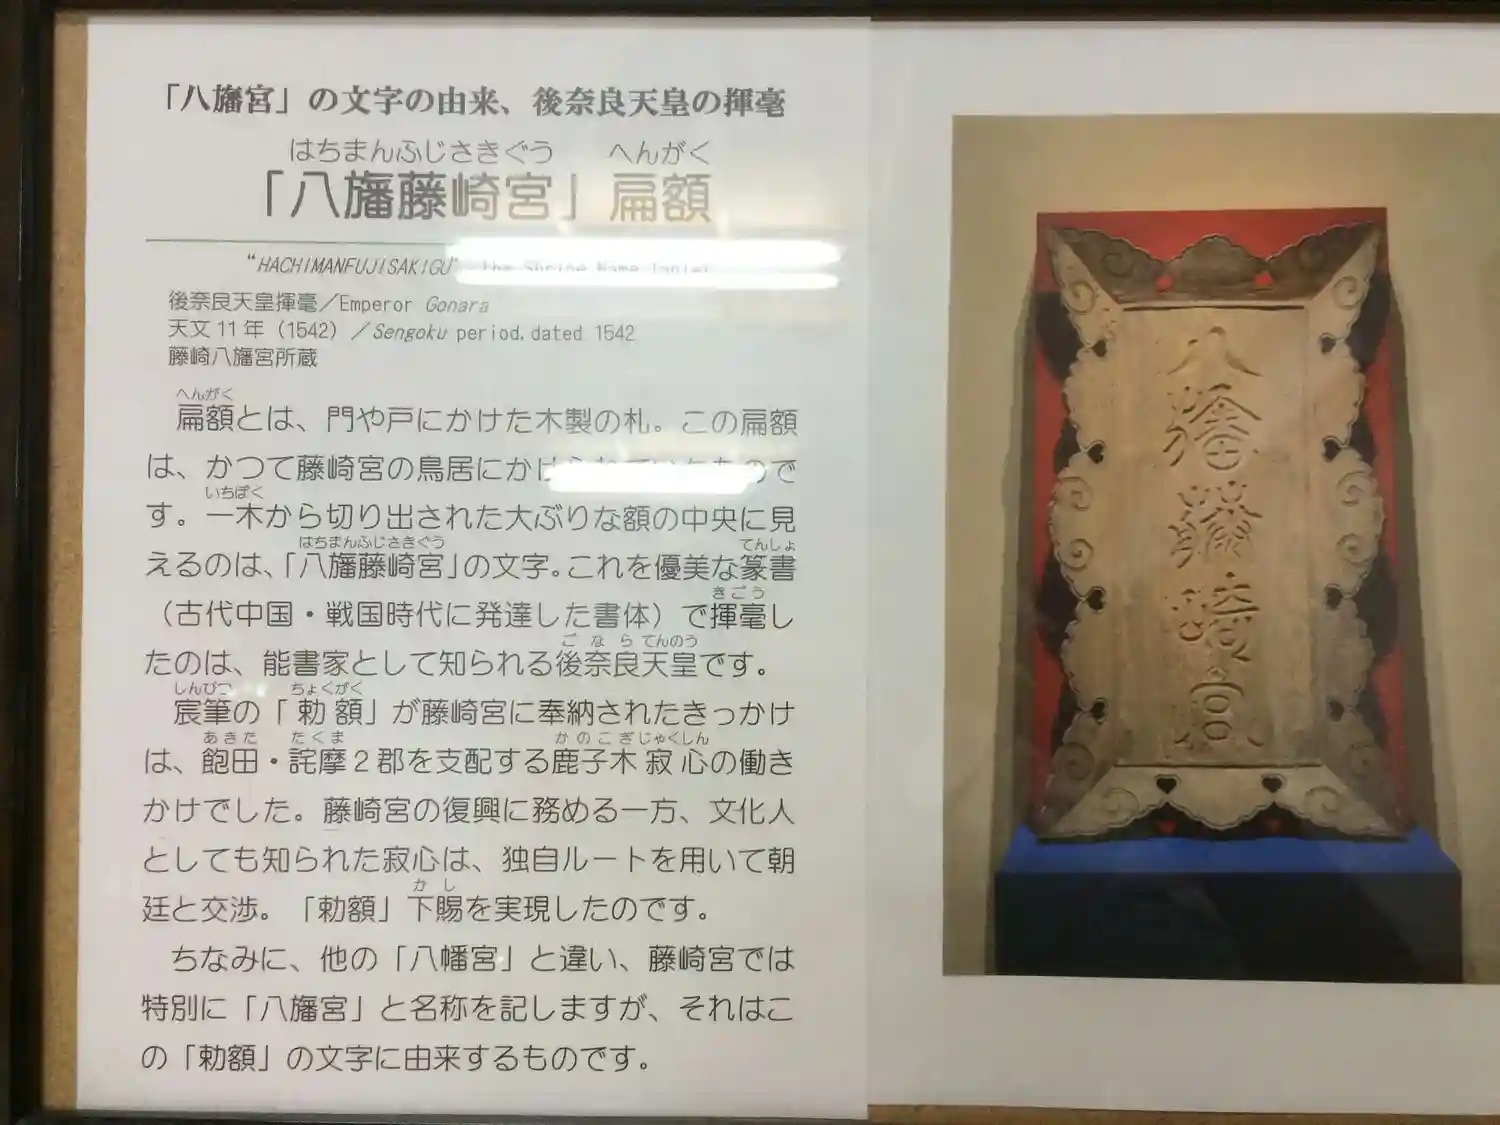 「八旛宮」の文字の由来、後奈良天皇の揮毫
はちまんふじさきぐう へんがく
「八旛藤崎宮」扁額
“HACHIMANFUJISAKIGU” the Shrine Name Tablet
後奈良天皇揮毫／Emperor Gonara
天文11年（1542）／Sengoku period, dated 1542
藤崎八旛宮所蔵
へんがく
扁額とは、門や戸にかけた木製の札。この扁額
は、かつて藤崎宮の鳥居にかけられていたもので
いちぼく
す。一木から切り出された大ぶりな額の中央に見
はちまんふじさきぐう てんしょ
えるのは、「八旛藤崎宮」の文字。これを優美な篆書
きごう
（古代中国・戦国時代に発達した書体）で揮毫し
ごならてんのう
たのは、能書家として知られる後奈良天皇です。
しんぴつ ちょくがく
宸筆の「勅額」が藤崎宮に奉納されたきっかけ
あきた たくま かのこぎじゃくしん
は、飽田・詫摩２郡を支配する鹿子木寂心の働き
かけでした。藤崎宮の復興に務める一方、文化人
としても知られた寂心は、独自ルートを用いて朝
かし
廷と交渉。「勅額」下賜を実現したのです。
ちなみに、他の「八幡宮」と違い、藤崎宮では
特別に「八旛宮」と名称を記しますが、それはこ
の「勅額」の文字に由来するものです。
八
旛
藤
崎
宮